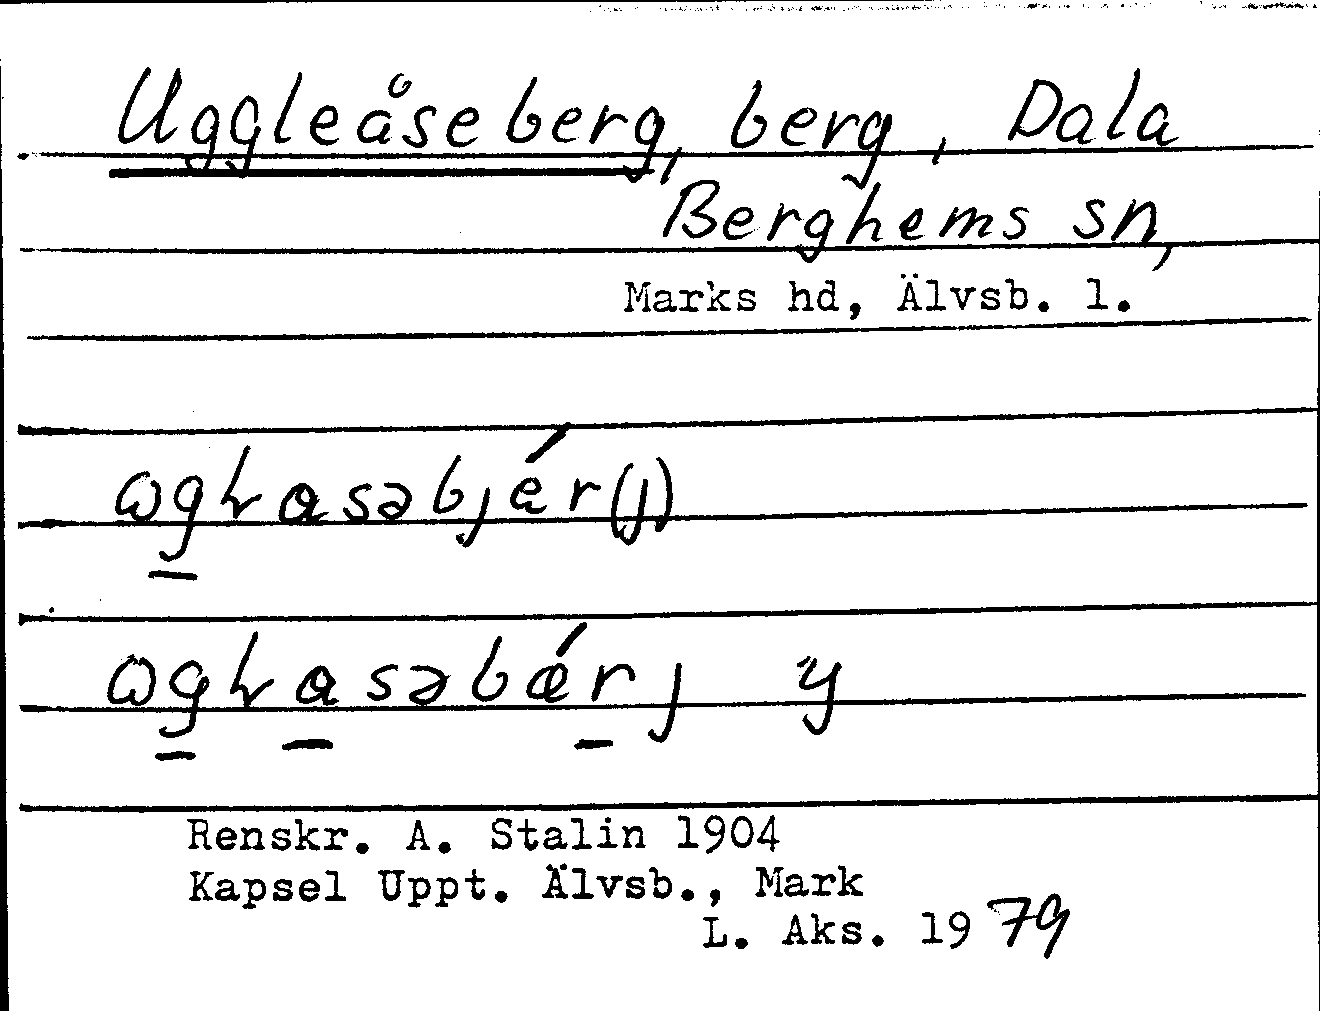 Uggleåseberg, berg, Dala
Berghems sn,
Marks hd, Älvsb. l.
ωgƖɑsəbjér(j)
ωgƖɑsəbǽrj y
Renskr. A. Stalin 1904
Kapsel Uppt. Älvsb., Mark
L. Aks. 1979